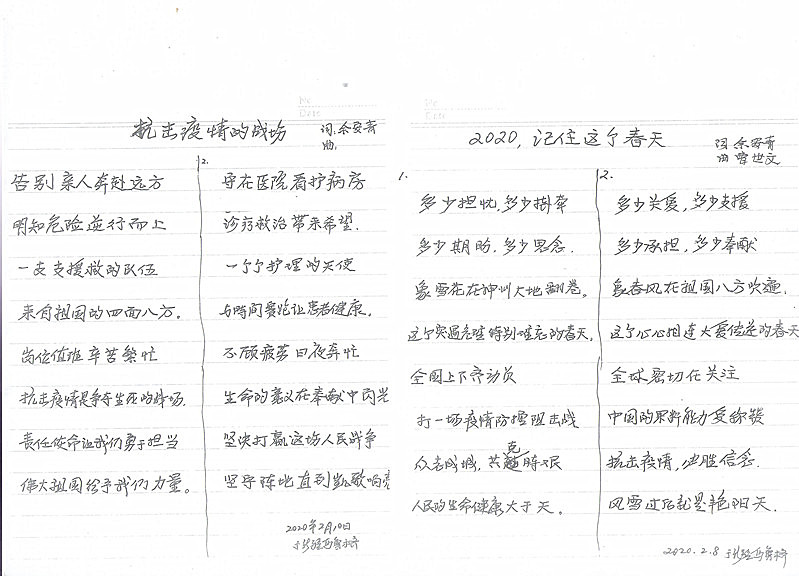 Mo
Date
抗击疫情的战场
词:余安青
曲:
告别亲人奔赴远方
明知危险逆行而上
一支支援救的队伍
来自祖国的四面八方。
岗位值班辛苦繁忙
抗击疫情是争夺生死的战场.
责任使命让我们勇于担当
伟大祖国给予我们力量。
2.
守在医院看护病房
诊疗救治带来希望.
一个个护理的天使
与时间赛跑让患者健康.
不顾疲劳日夜奔忙
生命的意义在奉献中闪光
坚决打赢这场人民战争
坚守阵地直到凯歌响亮
2020年2月10日
Mo
Date
2020,记住这个春天
词 余安青
曲 曾世文
1.
多少担忧,多少掛牵
多少期盼,多少思念.
象雪花在神州大地翻卷。
这个突遇危难特别难忘的春天.
全国上下齐动员
打一场疫情防控阻击战
众志成城,共克时艰
人民的生命健康大于天。
2.
多少关爱,多少支援
多少承担,多少奉献
象春风在祖国八方吹遍.
这个心心相连大爱传递的春天
全球密切在关注
中国的果断能力受称赞
抗击疫情,决胜信念.
风雪过后就是艳阳天.
2020.2.8